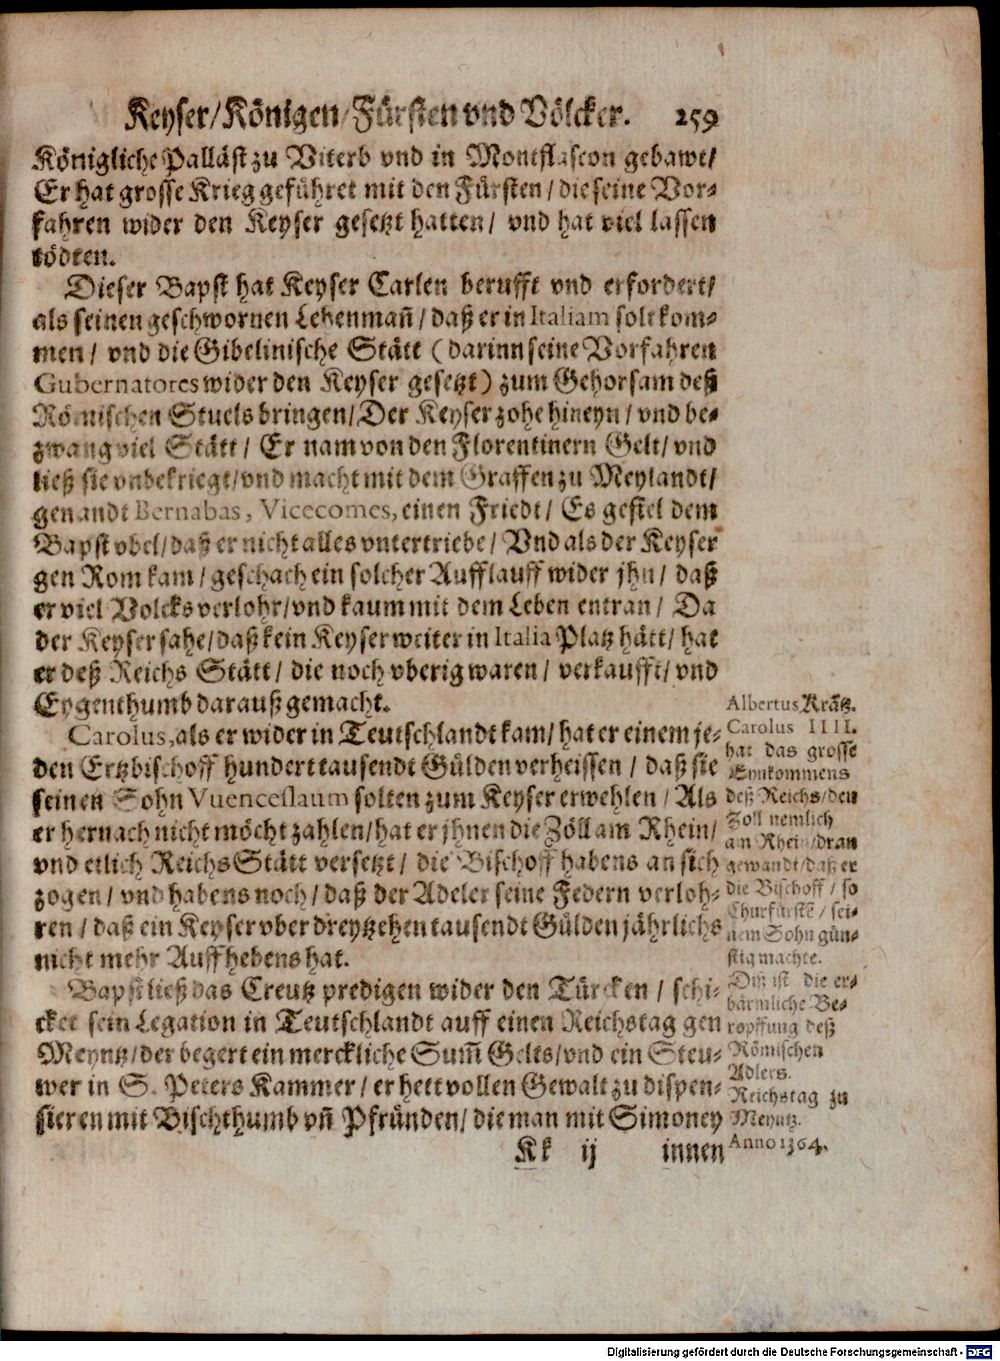 Keyser/Königen/Fürsten vnd Völcker. 259
Königliche Palläst zu Viterb vnd in Montflascon gebawt/
Er hat grosse Krieg geführet mit den Fürsten/die seine Vor-
fahren wider den Keyser gesetzt hatten/ vnd hat viel lassen
tödten.
Dieser Bapst hat Keyser Carlen berufft vnd erfordert/
als seinen geschwornen Lehenmañ/daß er in Italiam solt kom-
men/ vnd die Gibelinische Stätt (darinn seine Vorfahren
Gubernatores wider den Keyser gesetzt) zum Gehorsam deß
Römischen Stuels bringen/Der Keyser zohe hineyn/vnd be-
zwang viel Stätt/ Er nam von den Florentinern Gelt/vnd
ließ sie vnbekriegt/vnd macht mit dem Graffen zu Meylandt/
genandt Bernabas, Vicecomes, einen Friedt/ Es gefiel dem
Bapst vbel/daß er nicht alles vntertriebe/ Vnd als der Keyser
gen Rom kam/geschach ein solcher Aufflauff wider jhn/ daß
er viel Volcks verlohr/vnd kaum mit dem Leben entran/ Da
der Keyser sahe/daß kein Keyser weiter in Italia Platz hätt/hat
er deß Reichs Stätt/ die noch vberig waren/ verkaufft/vnd
Eygenthumb darauß gemacht.
Carolus, als er wider in Teutschlandt kam/hat er einem je-
den Ertzbischoff hundert tausendt Gülden verheissen/ daß sie
seinen Sohn Vuenceslaum solten zum Keyser erwehlen/Als
er hernach nicht möcht zahlen/hat er jhnen die Zöll am Rhein/
vnd etlich Reichs Stätt versetzt/ die Bischoff habens an sich
zogen/vnd habens noch/daß der Adeler seine Federn verloh-
ren/daß ein Keyser vber dreytzehen tausendt Gülden jährlichs
nicht mehr Auffhebens hat.
Bapst ließ das Creutz predigen wider den Türcken/ schi-
cket sein Legation in Teutschlandt auff einen Reichstag gen
Meyntz/der begert ein merckliche Sum̃ Gelts/vnd ein Steu-
wer in S. Peters Kammer/er hett vollen Gewalt zu dispen-
sieren mit Bischthumb vñ Pfründen/die man mit Simoney
Kk ij innen
Albertus Krätz.
Carolus IIII.
hat das grosse
Eynkommens
deß Reichs/den
Zoll nemlich
am Rhein/dran
gewandt/daß er
die Bischoff/so
Churfürstẽ/sei-
nem Sohn gün-
stig machte.
Diß ist die er-
bärmliche Be-
ropffung deß
Römischen
Adlers.
Reichstag zu
Meyntz.
Anno 1364.
Digitalisierung gefördert durch die Deutsche Forschungsgemeinschaft - DFG